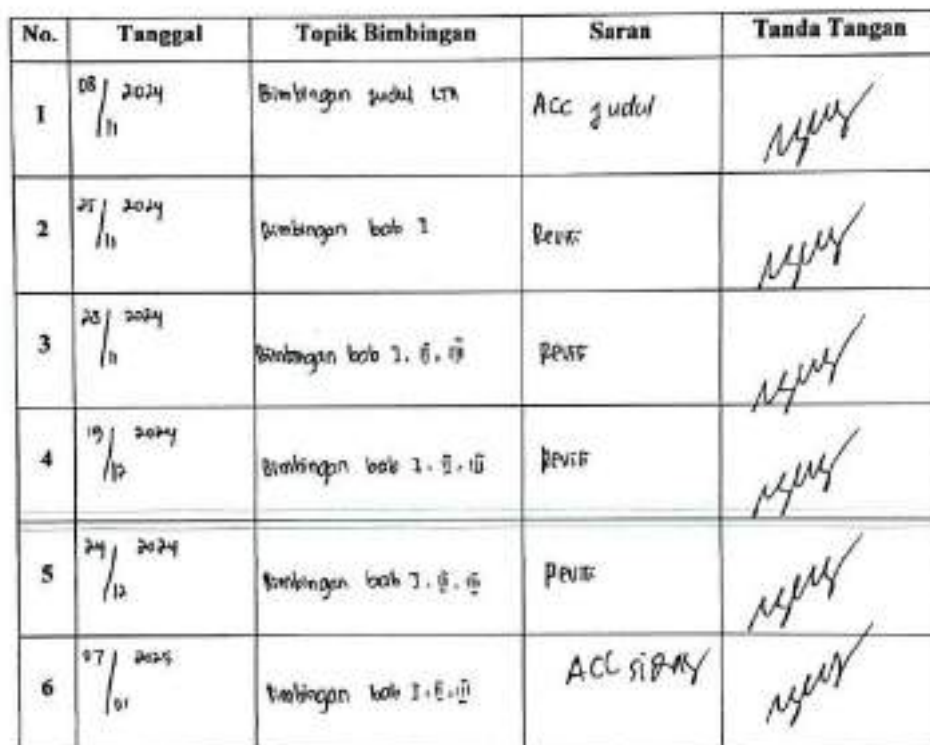 No. Tanggal Topik Bimbingan Saran Tanda Tangan
1 08/11 2024 Bimbingan judul LTA ACC judul
2 25/11 2024 Bimbingan bab I Revisi
3 28/11 2024 Bimbingan bab I. II. III Revisi
4 19/12 2024 Bimbingan bab I. II. III Revisi
5 24/12 2024 Bimbingan bab I. II. III Revisi
6 07/01 2025 Bimbingan bab I. II. III ACC sidang